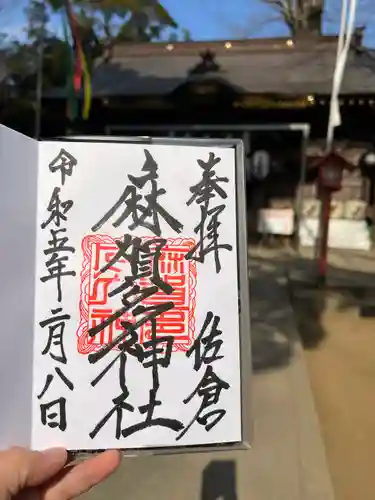 奉拝
佐倉
麻賀多神社
令和五年二月八日